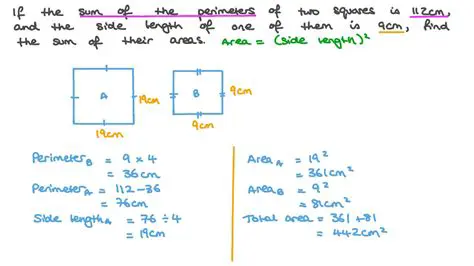 If the sum of the perimeters of two squares is 112cm,
and the side length of one of them is 9cm, find
the sum of their areas. Area = (side length)²
A
19cm
19cm
B
9cm
9cm
Perimeter_B = 9 × 4
= 36cm
Perimeter_A = 112 – 36
= 76cm
Side length_A = 76 ÷ 4
= 19cm
Area_A = 19²
= 361cm²
Area_B = 9²
= 81cm²
Total area = 361 + 81
= 442cm²